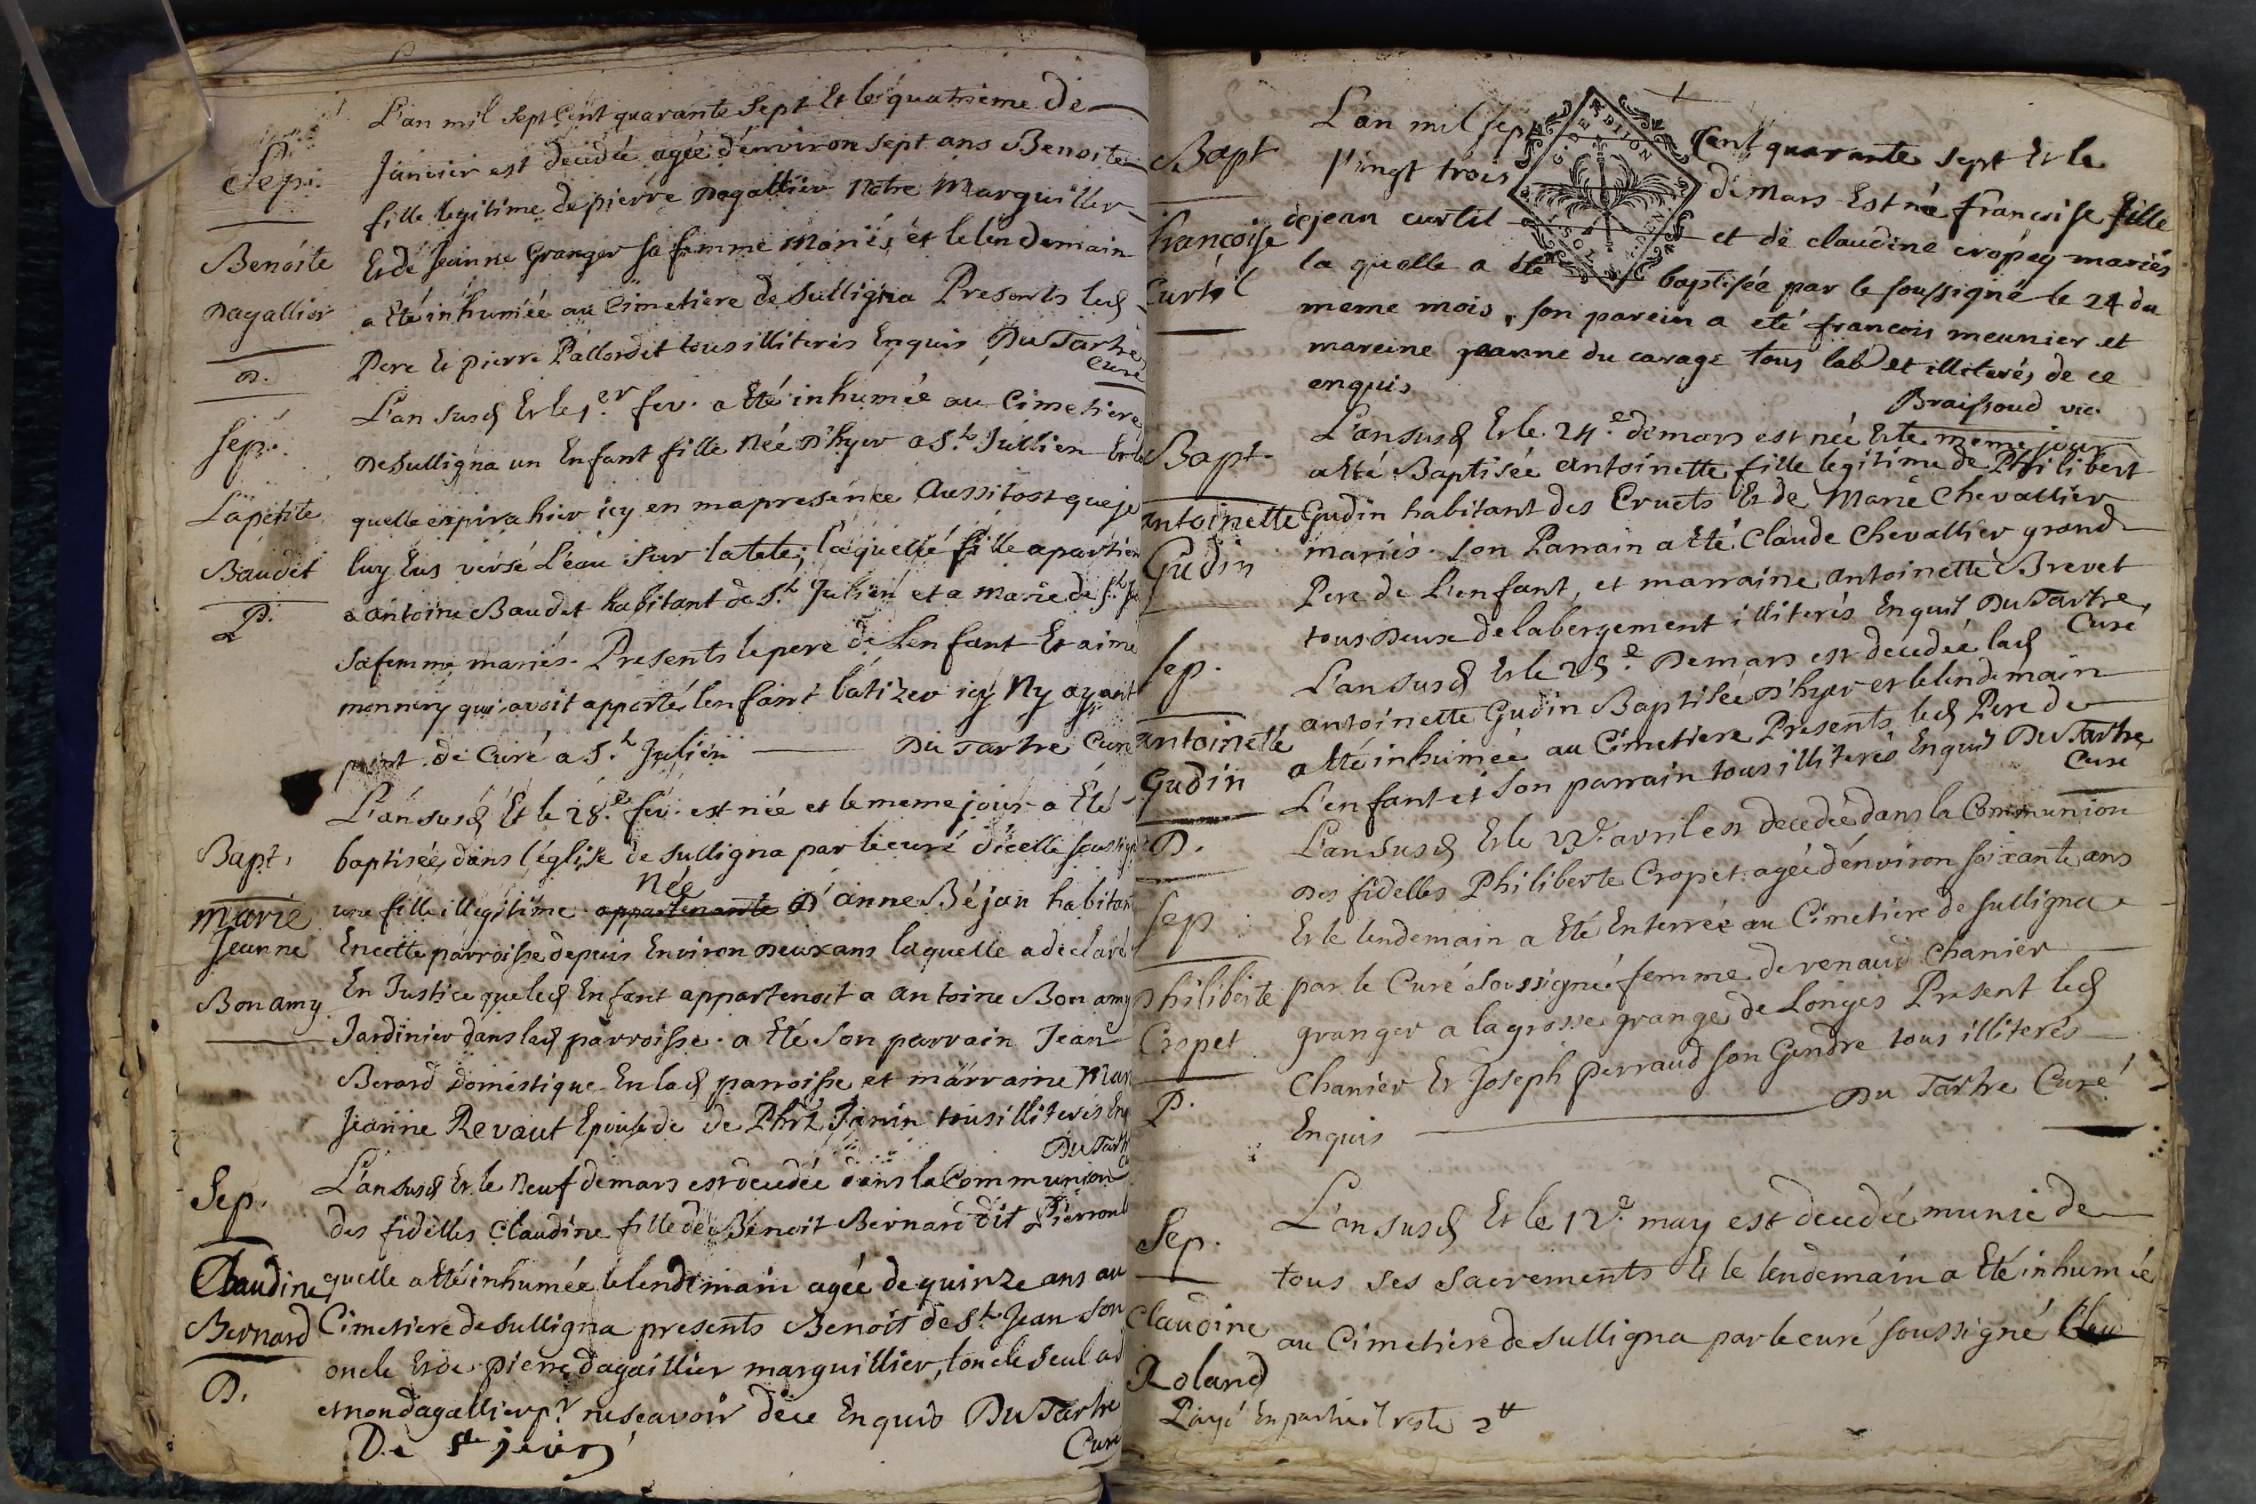 L'an mil sept Cent quarante sept Et le quatrieme de
Janvier est decedée agée d'environ sept ans Benoite
fille legitime de pierre Dagallier Notre Marguillier
Et de Jeanne Granger sa femme Mariés, et le lendemain
a Eté inhumée au Cimetiere de Sulligna Presents led
Pere Et pierre Pallordet tous illiterés Enquis Du Tartre
Curé
Sep.
Benoite
Dagallier
D.
L'an susd Et le 1er fev. a Eté inhumée au Cimetiere
De Sulligna un Enfant fille Née D'hyer a St. Jullien Et la
quelle expira hier icy en ma presence Aussitost que je
luy Eus versé L'eau sur la tete; laquelle fille apartien
a antoine Baudet habitant de St. Julien et a Marie de St. Ju
sa femme mariés. Presents le pere de L'enfant Et aimé
monnery qui avoit apporté l'enfant batizer icy Ny ayant
point de Curé a St. Julien Du Tartre Curé
Sep.
La petite
Baudet
P.
L'an susd Et le 28.e fev. est née et le meme jour a Eté
baptisée dans l'église de Sulligna par le curé d'icelle soussigné
Née
une fille illegitime appartenante D'anne Béjan habitan
En cette parroisse depuis Environ Deux ans laquelle a déclaré
En Justice que led Enfant appartenoit a antoine Bonamy
Jardinier dans lad parroisse. a Eté son parrain Jean
Berard Domestique En lad parroisse et marraine Mar
Jeanne Revaut Epouse de de Phzt Janin tous illiterés Enq
Du Tart
Cu
Bapt.
Marie
Jeanne
Bonamy
L'an susd Et le Neuf de mars est decedée dans la Communion
des fidelles Claudine fille de Benoit Bernard dit Pierrout
quelle a Eté inhumée le lendemain agée de quinze ans au
Cimetiere de Sulligna presents Benoit de St. Jean son
oncle Et de pierre dagaillier marguillier, l'oncle seul ad
et non dagallier pr. ne scavoir de ce Enquis Du Tartre
De St jean Curé
Sep.
Claudine
Bernard
D.
L'an mil sept Cent quarante sept Et le
Vingt trois de Mars Est né francoise fille
de jean curtil et de claudine cropey mariés
la quelle a été baptisée par le soussigné le 24 du
meme mois, son parein a eté francois meunier et
mareine jeanne du carage tous labd et illiterés de ce
enquis
Braissoud vic.
Bapt
françoise
Curtil
G. DE DIJON
L'an susd Et le 24.e de mars est née Et le meme jour
a Eté Baptisée antoinette fille legitime de Philibert
Gudin habitant des Cruets Et de Marie Chevallier
mariés. Son Parrain a Eté Claude Chevallier grand
Pere de L'enfant, et marraine antoinette Brevet
tous Deux de labergement illiterés Enquis Du Tartre
Curé
Bapt.
antoinette
Gudin
L'an susd Et le 25.e De mars est decedée lad
antoinette Gudin Baptisée D'hyer et le lendemain
a Eté inhumée au Cimetiere Presents led Pere de
L'enfant et son parrain tous illiterés Enquis Du Tartre
Curé
Sep.
antoinette
Gudin
D.
L'an susd Et le avril est decedée dans la Communion
Des fidelles Philiberte Cropet agée d'environ soixante ans
Et le lendemain a Eté Enterrée au Cimetiere de Sulligna
par le Curé Soussigné femme de renaud Chanier
granger a la grosse grange de Longes Present led
Chanier Et Joseph perraud son Gendre tous illiterés
Enquis Du Tartre Curé
Sep
Philiberte
Cropet
P.
L'an susd Et le may est decedée munie de
tous ses sacrements Et le lendemain a Eté inhumée
au Cimetiere de Sulligna par le curé soussigné
Sep.
Claudine
Roland
Payé En partie il reste 2tt